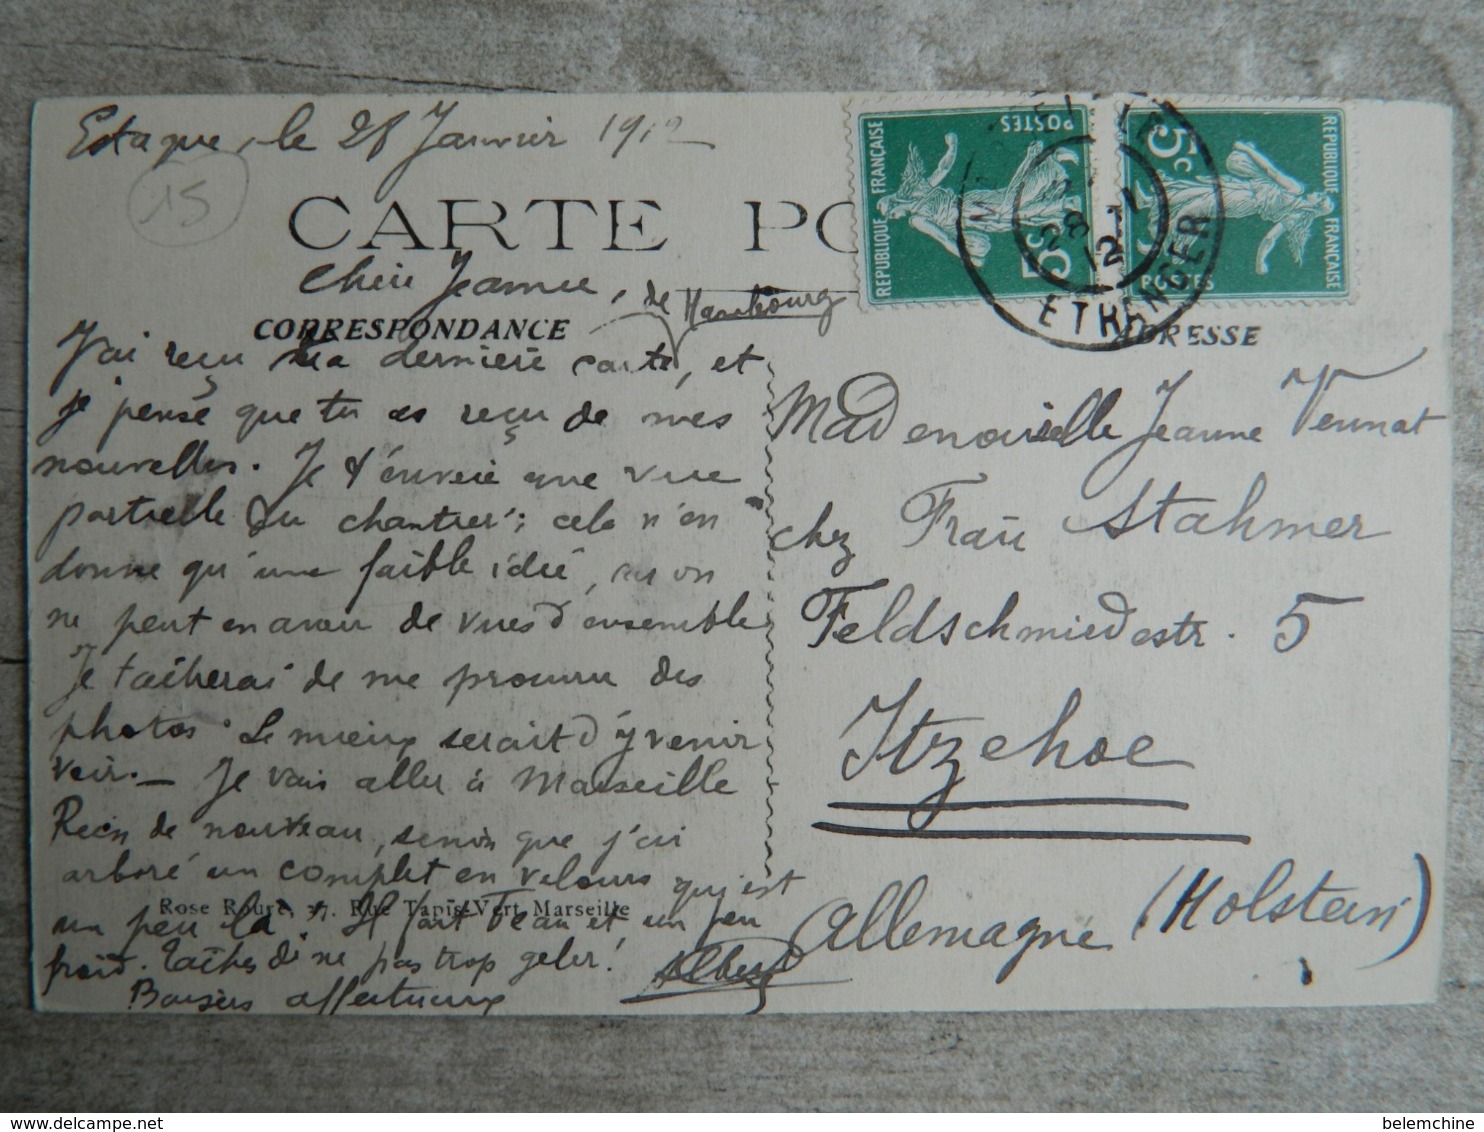 Estaque, le 28 Janvier 1912
15
CARTE PO
Chère Jeanne,
de Hambourg
CORRESPONDANCE
J'ai reçu ta dernière carte, et
je pense que tu as reçu de mes
nouvelles. Je t'envoie une vue
partielle du chantier; cela n'en
donne qu'une faible idée, on
ne peut en avoir de vues d'ensemble
Je tâcherai de me procurer des
photos. Le mieux serait d'y venir
voir. — Je vais aller à Marseille
Rien de nouveau, sinon que j'ai
arboré un complet en velours qui est
un peu là. Il fait beau et un peu
froid. Tâches de ne pas trop geler!
Baisers affectueux
Albert
Rose Roure, 37, Rue Tapis-Vert, Marseille
REPUBLIQUE FRANÇAISE
POSTES
5c
REPUBLIQUE FRANÇAISE
POSTES
5c
28 -1
12
ETRANGER
ADRESSE
Mademoiselle Jeanne
chez Frau Stahmer
Feldschmiedestr. 5
Itzehoe
Allemagne (Holstein)
belemchine